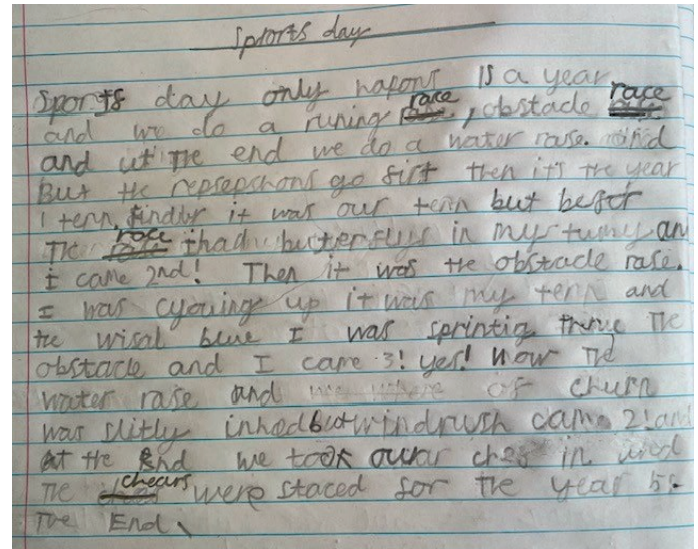 Sports day
Sports day only hapons 1s a year
and we do a runing race, obstacle race
and at the end we do a water rase.
But the repsepshons go first then it's the year
1 tern, findly it was our tern but befor
The race I had butterflys in my tumy an
I came 2nd! Then it was the obstacle rase.
I was cyouing up it was my tern and
the wisal blue I was sprintig the
obstacle and I came 3! yes! Now The
water rase and we where of churn
was slitly inhed but windrush came 2! and
at the End we took ouar in and
The chears were staced for the year 5s
The End.